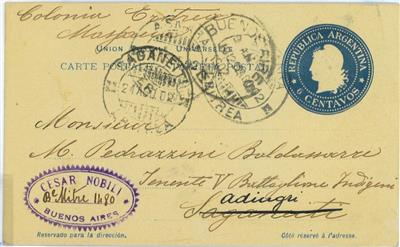 Colonia Eritrea
Massaua
UNION UNIVERSELLE
CARTE POSTALE
REPUBLICA ARGENTINA
6 CENTAVOS
BUENOS AIRES
SAGANEITI
ERITREA
Monsieur
M. Pedrazzini Baldassarre
Tenente V Battaglione Indigeni
adiugri
Saganeiti
CESAR NOBILI
Bmé Mitre 1480
BUENOS AIRES
Reservado para la dirección.
Côté réservé à l'adresse.